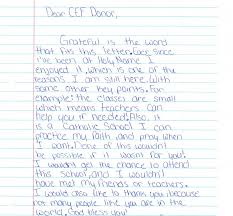 Dear CEF Donor,
Grateful is the word
that fits this letter. Ever since
I've been at Holy Name I
enjoyed it, which is one of the
reasons I am still here. With
some other key points. For
example: the classes are small
which means teachers can
help you if needed. Also, it
is a Catholic School I can
practice my faith, and pray when
I want. None of this wouldn't
be possible if it wasnt for you!
I wouldnt get the chance to attend
this school, and I wouldn't
have met my friends or teachers.
I would also like to thank you because
not many people like you are in the
world. God bless you!